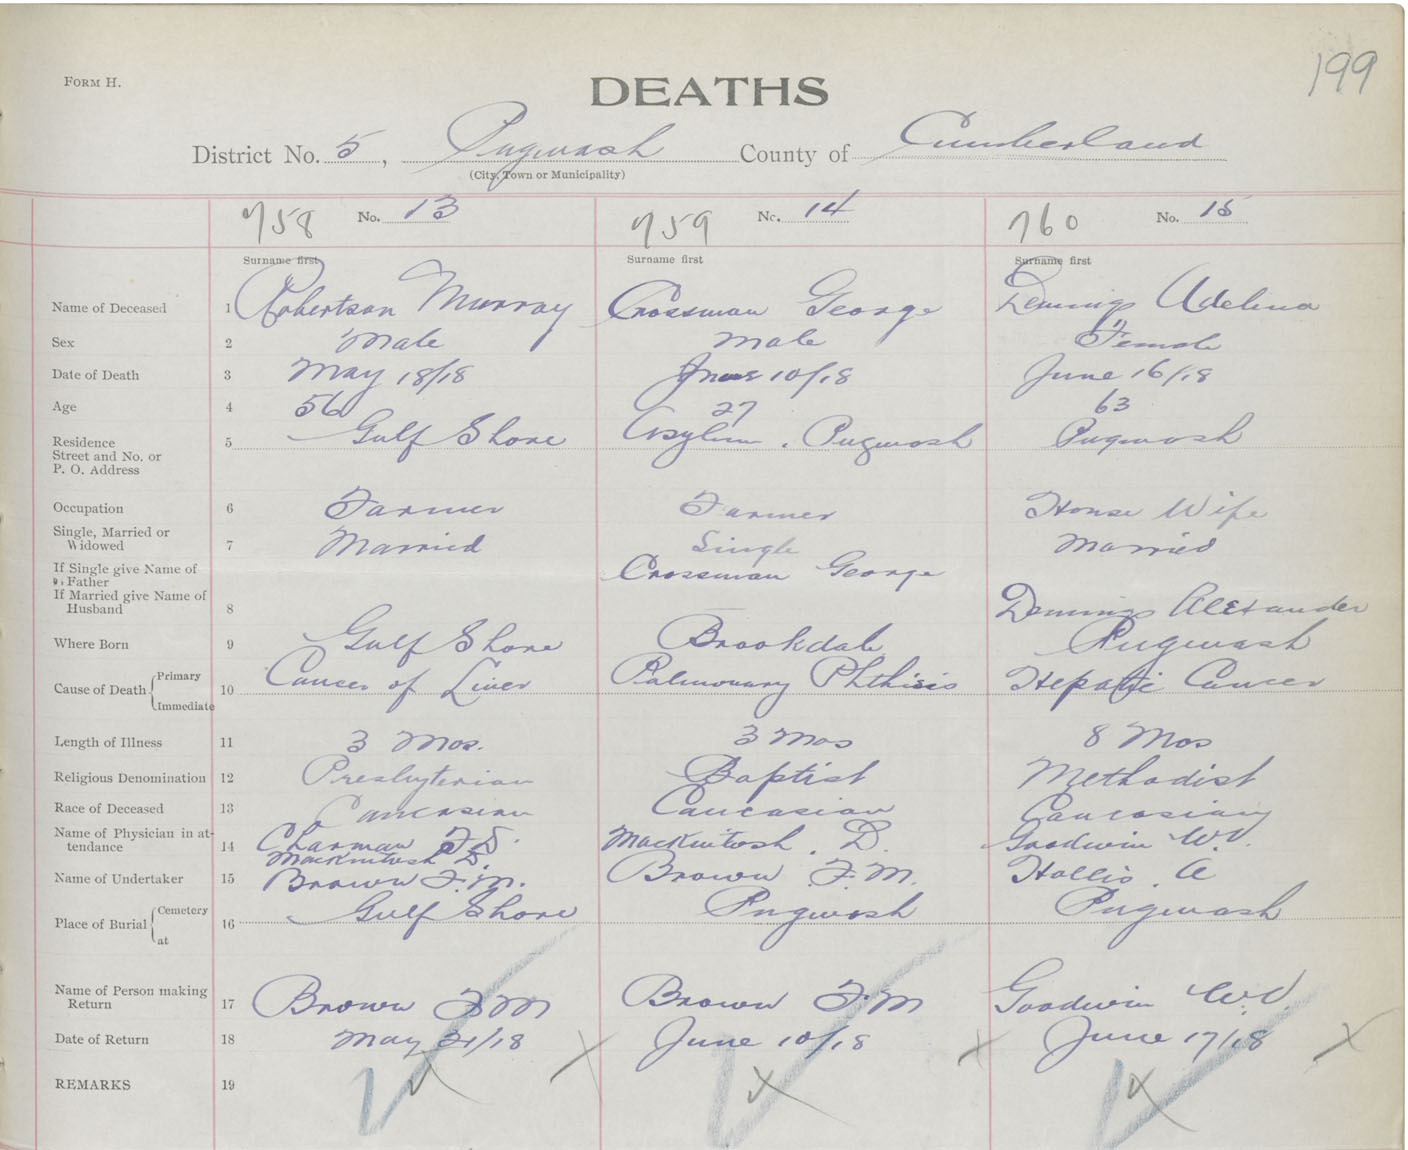 199
FORM H.
DEATHS
District No. 5, Pugwash County of Cumberland
(City, Town or Municipality)
758 No. 13 759 No. 14 760 No. 15
Surname first Surname first Surname first
Name of Deceased 1 Robertson Murray Crossman George Demings Adelina
Sex 2 Male Male " Female
Date of Death 3 May 18/18 June 10/18 June 16/18
Age 4 56 27 63
Residence Street and No. or P. O. Address 5 Gulf Shore Asylum, Pugwash Pugwash
Occupation 6 Farmer Farmer House Wife
Single, Married or Widowed 7 Married Single Married
If Single give Name of Father Crossman George
If Married give Name of Husband 8 Demings Alexander
Where Born 9 Gulf Shore Brookdale Pugwash
Cause of Death { Primary Immediate 10 Cancer of Liver Pulmonary Phthisis Hepatic Cancer
Length of Illness 11 3 Mos. 3 Mos 8 Mos
Religious Denomination 12 Presbyterian Baptist Methodist
Race of Deceased 13 Caucasian Caucasian Caucasian
Name of Physician in attendance 14 Charman F.D. Mackintosh D. Mackintosh. D. Goodwin W.V.
Name of Undertaker 15 Brown F.M. Brown F.M. Hollis. A
Place of Burial { Cemetery at 16 Gulf Shore Pugwash Pugwash
Name of Person making Return 17 Brown F.M Brown F.M Goodwin W.V.
Date of Return 18 May 21/18 June 10/18 June 17/18
REMARKS 19